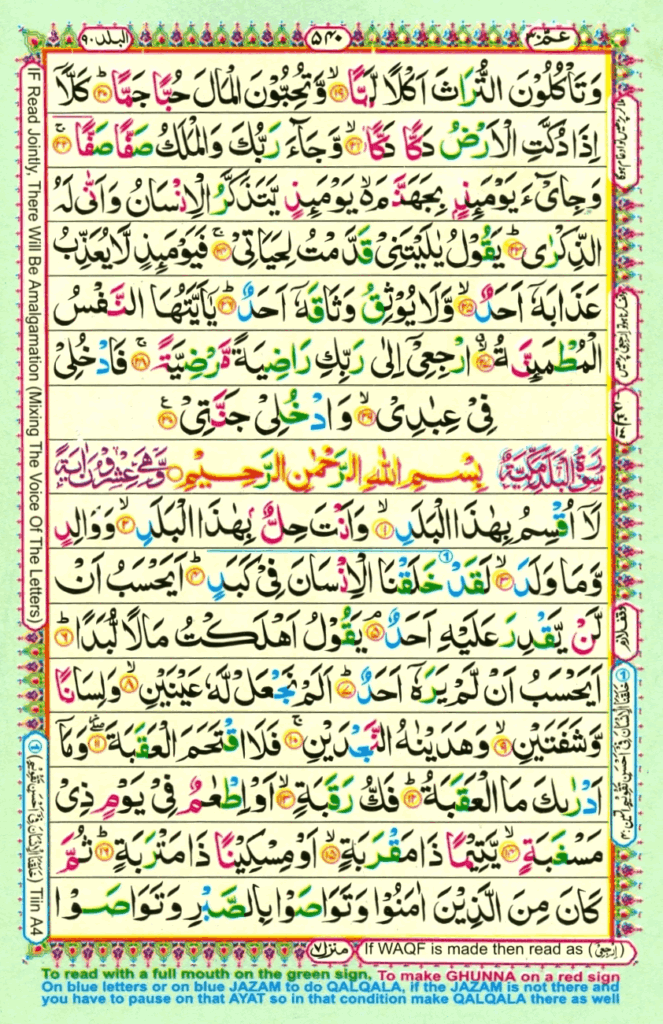 البلد ۹۰
۵۴۰
عم ۳۰
وَتَاْكُلُوْنَ التُّرَاثَ اَكْلًا لَّمًّا ۙ﴿۱۹﴾ وَّتُحِبُّوْنَ الْمَالَ حُبًّا جَمًّا ؕ﴿۲۰﴾ كَلَّاۤ
اِذَا دُكَّتِ الْاَرْضُ دَكًّا دَكًّا ۙ﴿۲۱﴾ وَّجَآءَ رَبُّكَ وَالْمَلَكُ صَفًّا صَفًّا ۚ﴿۲۲﴾
وَجِایْٓءَ يَوْمَئِذٍۭ بِجَهَنَّمَ ۙ۬ يَوْمَئِذٍ يَّتَذَكَّرُ الْاِنْسَانُ وَاَنّٰى لَهُ
الذِّكْرٰى ؕ﴿۲۳﴾ يَقُوْلُ يٰلَيْتَنِيْ قَدَّمْتُ لِحَيَاتِيْ ۚ﴿۲۴﴾ فَيَوْمَئِذٍ لَّا يُعَذِّبُ
عَذَابَهٗۤ اَحَدٌ ۙ﴿۲۵﴾ وَّلَا يُوْثِقُ وَثَاقَهٗۤ اَحَدٌ ؕ﴿۲۶﴾ يٰۤاَيَّتُهَا النَّفْسُ
الْمُطْمَئِنَّةُ ۖ﴿۲۷﴾ ارْجِعِيْۤ اِلٰى رَبِّكِ رَاضِيَةً مَّرْضِيَّةً ۚ﴿۲۸﴾ فَادْخُلِيْ
فِيْ عِبٰدِيْ ۙ﴿۲۹﴾ وَادْخُلِيْ جَنَّتِيْ ﴿۳۰﴾
سُوْرَةُ الْبَلَدِ مَكِّيَّةٌ بِسْمِ اللهِ الرَّحْمٰنِ الرَّحِيْمِ وَّهِيَ عِشْرُوْنَ اٰيَةً
لَاۤ اُقْسِمُ بِهٰذَا الْبَلَدِ ۙ﴿۱﴾ وَاَنْتَ حِلٌّۢ بِهٰذَا الْبَلَدِ ۙ﴿۲﴾ وَوَالِدٍ
وَّمَا وَلَدَ ۙ﴿۳﴾ لَقَدْ خَلَقْنَا الْاِنْسَانَ فِيْ كَبَدٍ ؕ﴿۴﴾ اَيَحْسَبُ اَنْ
لَّنْ يَّقْدِرَ عَلَيْهِ اَحَدٌ ۘ﴿۵﴾ يَقُوْلُ اَهْلَكْتُ مَالًا لُّبَدًا ؕ﴿۶﴾
اَيَحْسَبُ اَنْ لَّمْ يَرَهٗۤ اَحَدٌ ؕ﴿۷﴾ اَلَمْ نَجْعَلْ لَّهٗ عَيْنَيْنِ ۙ﴿۸﴾ وَلِسَانًا
وَّشَفَتَيْنِ ۙ﴿۹﴾ وَهَدَيْنٰهُ النَّجْدَيْنِ ۚ﴿۱۰﴾ فَلَا اقْتَحَمَ الْعَقَبَةَ ۖ﴿۱۱﴾ وَمَاۤ
اَدْرٰىكَ مَا الْعَقَبَةُ ؕ﴿۱۲﴾ فَكُّ رَقَبَةٍ ۙ﴿۱۳﴾ اَوْ اِطْعٰمٌ فِيْ يَوْمٍ ذِيْ
مَسْغَبَةٍ ۙ﴿۱۴﴾ يَّتِيْمًا ذَا مَقْرَبَةٍ ۙ﴿۱۵﴾ اَوْ مِسْكِيْنًا ذَا مَتْرَبَةٍ ؕ﴿۱۶﴾ ثُمَّ
كَانَ مِنَ الَّذِيْنَ اٰمَنُوْا وَتَوَاصَوْا بِالصَّبْرِ وَتَوَاصَوْا
IF Read Jointly, There Will Be Amalgamation (Mixing The Voice Of The Letters)
خَلَقْنَا الْاِنْسَانَ فِيْ اَحْسَنِ تَقْوِيْمٍ Tiin A4
منزل ۷
If WAQF is made then read as (اِرْجِعِيْ)
To read with a full mouth on the green sign, To make GHUNNA on a red sign
On blue letters or on blue JAZAM to do QALQALA, if the JAZAM is not there and
you have to pause on that AYAT so in that condition make QALQALA there as well